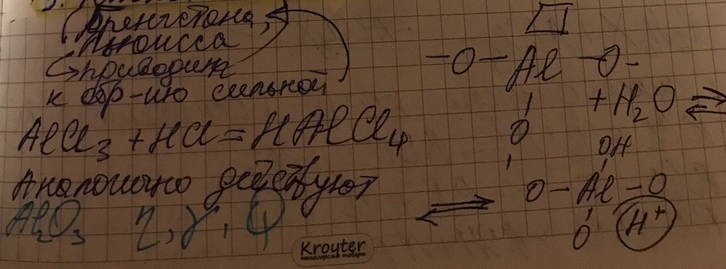 Бренстона,
Льюисса
приводит
к обр-ию сильной
AlCl₃ + HCl = HAlCl₄
Аналогично действуют
Al₂O₃ η, γ,
-O-Al-O-
O
+H₂O ⇌
⇌
OH
O-Al-O
O H⁺
Kroyter
канцелярские товары